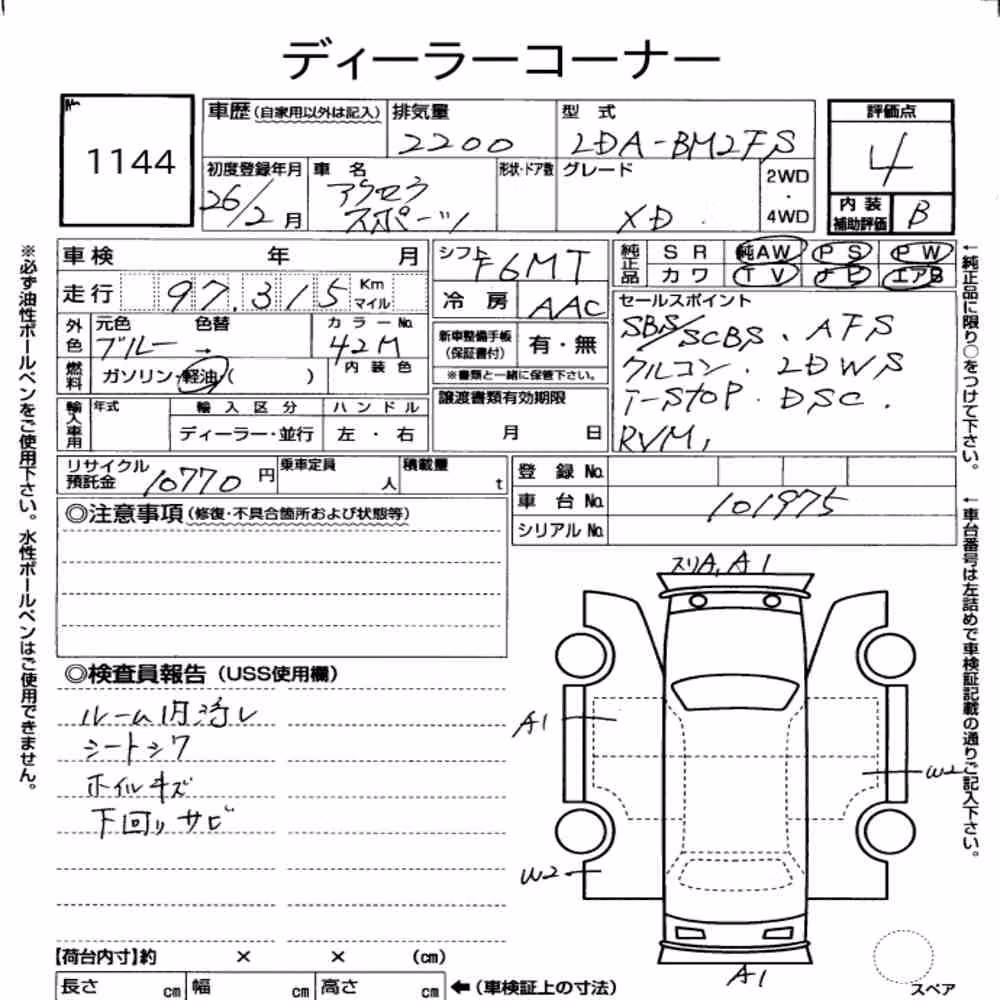 ディーラーコーナー
1144
車歴(自家用以外は記入)
排気量
2200
型 式
LDA-BM2FS
評価点
4
初度登録年月
26/2月
車 名
アクセラ
スポーツ
形状・ドア数
グレード
XD
2WD
・
4WD
内 装
補助評価
B
車検 年 月
走行 97,315 Km
マイル
シフト F6MT
冷 房 AAC
純正品
S R 純AW P S P W
カワ T V ナビ エアB
外色
元色 色替
ブルー →
カラーNo.
42M
内 装 色
燃料
ガソリン・軽油( )
新車整備手帳
(保証書付)
有・無
※書類と一緒に保管下さい。
セールスポイント
SBS/SCBS、AFS
クルコン、LDWS
i-STOP、DSC、
RVM,
輸入車用
年式
輸 入 区 分
ディーラー・並行
ハ ン ド ル
左 ・ 右
譲渡書類有効期限
月 日
リサイクル
預託金
10770円
乗車定員
人
積載量
t
登 録 No.
車 台 No. 101975
シリアル No.
◎注意事項(修復・不具合箇所および状態等)
◎検査員報告(USS使用欄)
ルーム内汚レ
シートシワ
ホイルキズ
下回りサビ
スリA, A1
A1
W2
W2
A1
スペア
【荷台内寸】約 × × (cm)
長さ cm 幅 cm 高さ cm ←(車検証上の寸法)
※必ず油性ボールペンをご使用下さい。水性ボールペンはご使用できません。
←純正品に限り○をつけて下さい。
←車台番号は左詰めで車検証記載の通りご記入下さい。